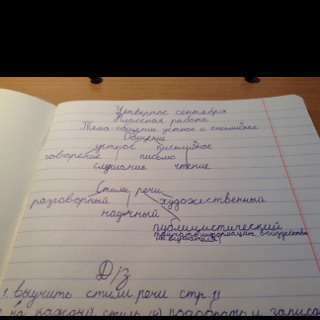 Четвертое сентября
Классная работа
Тема: общение устное и письменное
Общение
устное письменное
говорение письмо
слушание чтение
Стили речи
разговорный художественный
научный
публицистический
Д/з
1. выучить стили речи стр. 11
на каждый стиль подобрать и записа